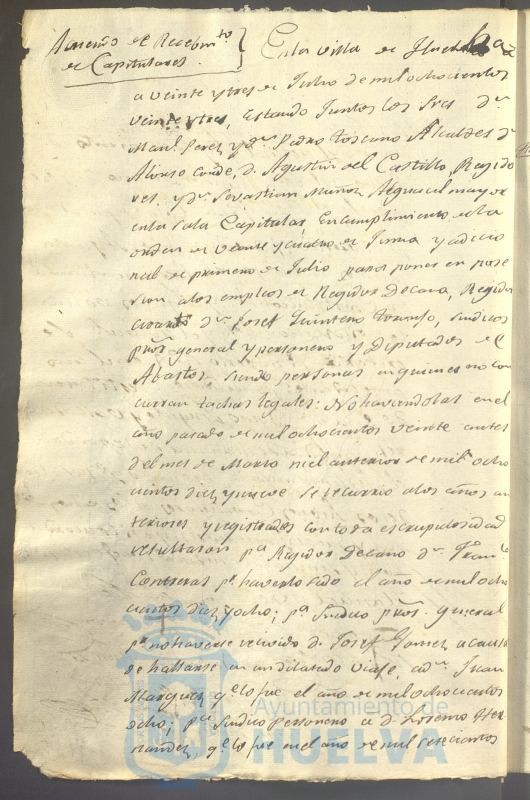 Acuerdo de Recebim.to
de Capitulares.
En la villa de Huelva
a veinte y tres de Julio de mil ochocientos
veinte y tres, Estando Juntos los Sres D.n
Man.l Perez y D.n Pedro Toscano Alcaldes D.n
Alonso Conde, D. Agustin del Castillo, Regido
res, y D.n Sevastian Muñoz Alguacil mayor
en la sala Capitular, En cumplimiento de la
orden de veinte y cuatro de Junio y adicio
nal de primero de Julio para poner en pose
sion a los empleos de Regidor Decano, Regidor
cuarto D.n Josef Quintero, Sindicos
pros. general y personero y Diputados de
Abastos siendo personas en quienes no con
curran tachas legales: No haviendolas en el
año pasado de mil ochocientos veinte antes
del mes de Marzo ni el anterior de mil ocho
cientos diez y nueve se recurrio a los años an
teriores y registrados con toda escrupulosidad
resultaron p.a Regidor Decano D.n Fran.co
Contreras p.r haverlo sido el año de mil ocho
cientos diez y ocho; p.a Sindico pros. general
p.r no haverse recivido D. Josef Gomez a causa
de hallarse en un dilatado viaje, a D.n Juan
Marquez q.e lo fue el año de mil ochocientos
ocho; p.a Sindico personero a D. Lorenzo Her
nandez, q.e lo fue en el año de mil setecientos
Ayuntamiento de
HUELVA